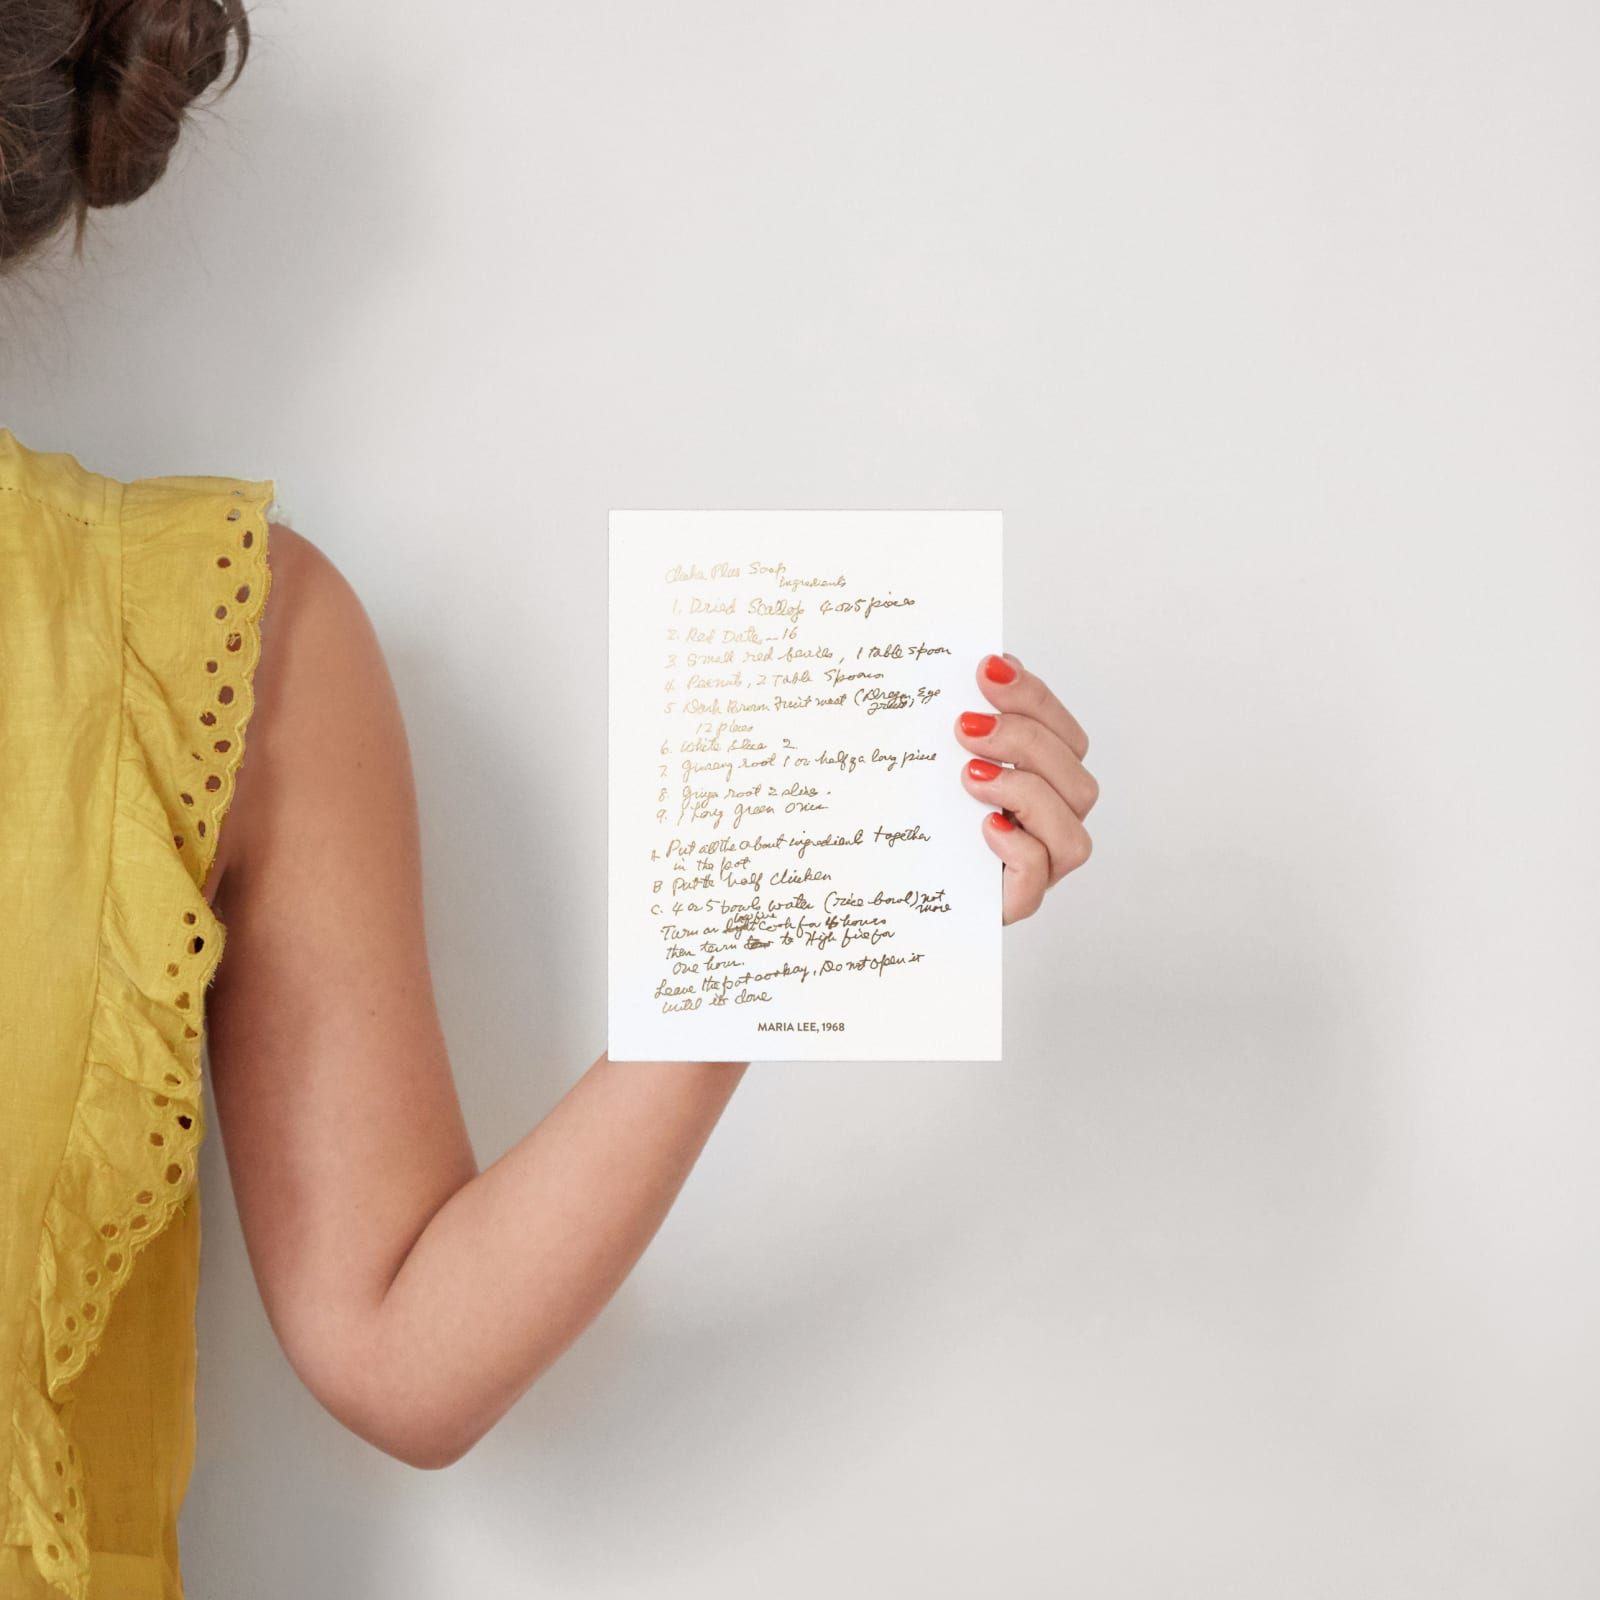 Plus Soup
ingredients
1. Dried Scallop 4 or 5 pieces
2. Red Date - 16
3 Small red berries, 1 table spoon
4. Peanuts, 2 Table Spoons
5 Dark Fruit meat (Dragon Eye
12 pieces
6. White 2
7. Ginseng root 1 or half a long piece
8. root 2 slice.
9. 1 Long green
A Put all the about ingredients together
in the pot
B Put the half Chicken
C. 4 or 5 bowls water (rice bowl) not
more
low fire
Turn on light Cook for hours
then turn to High fire for
one hour.
Leave the pot, Do not open it
until it's done
MARIA LEE, 1968